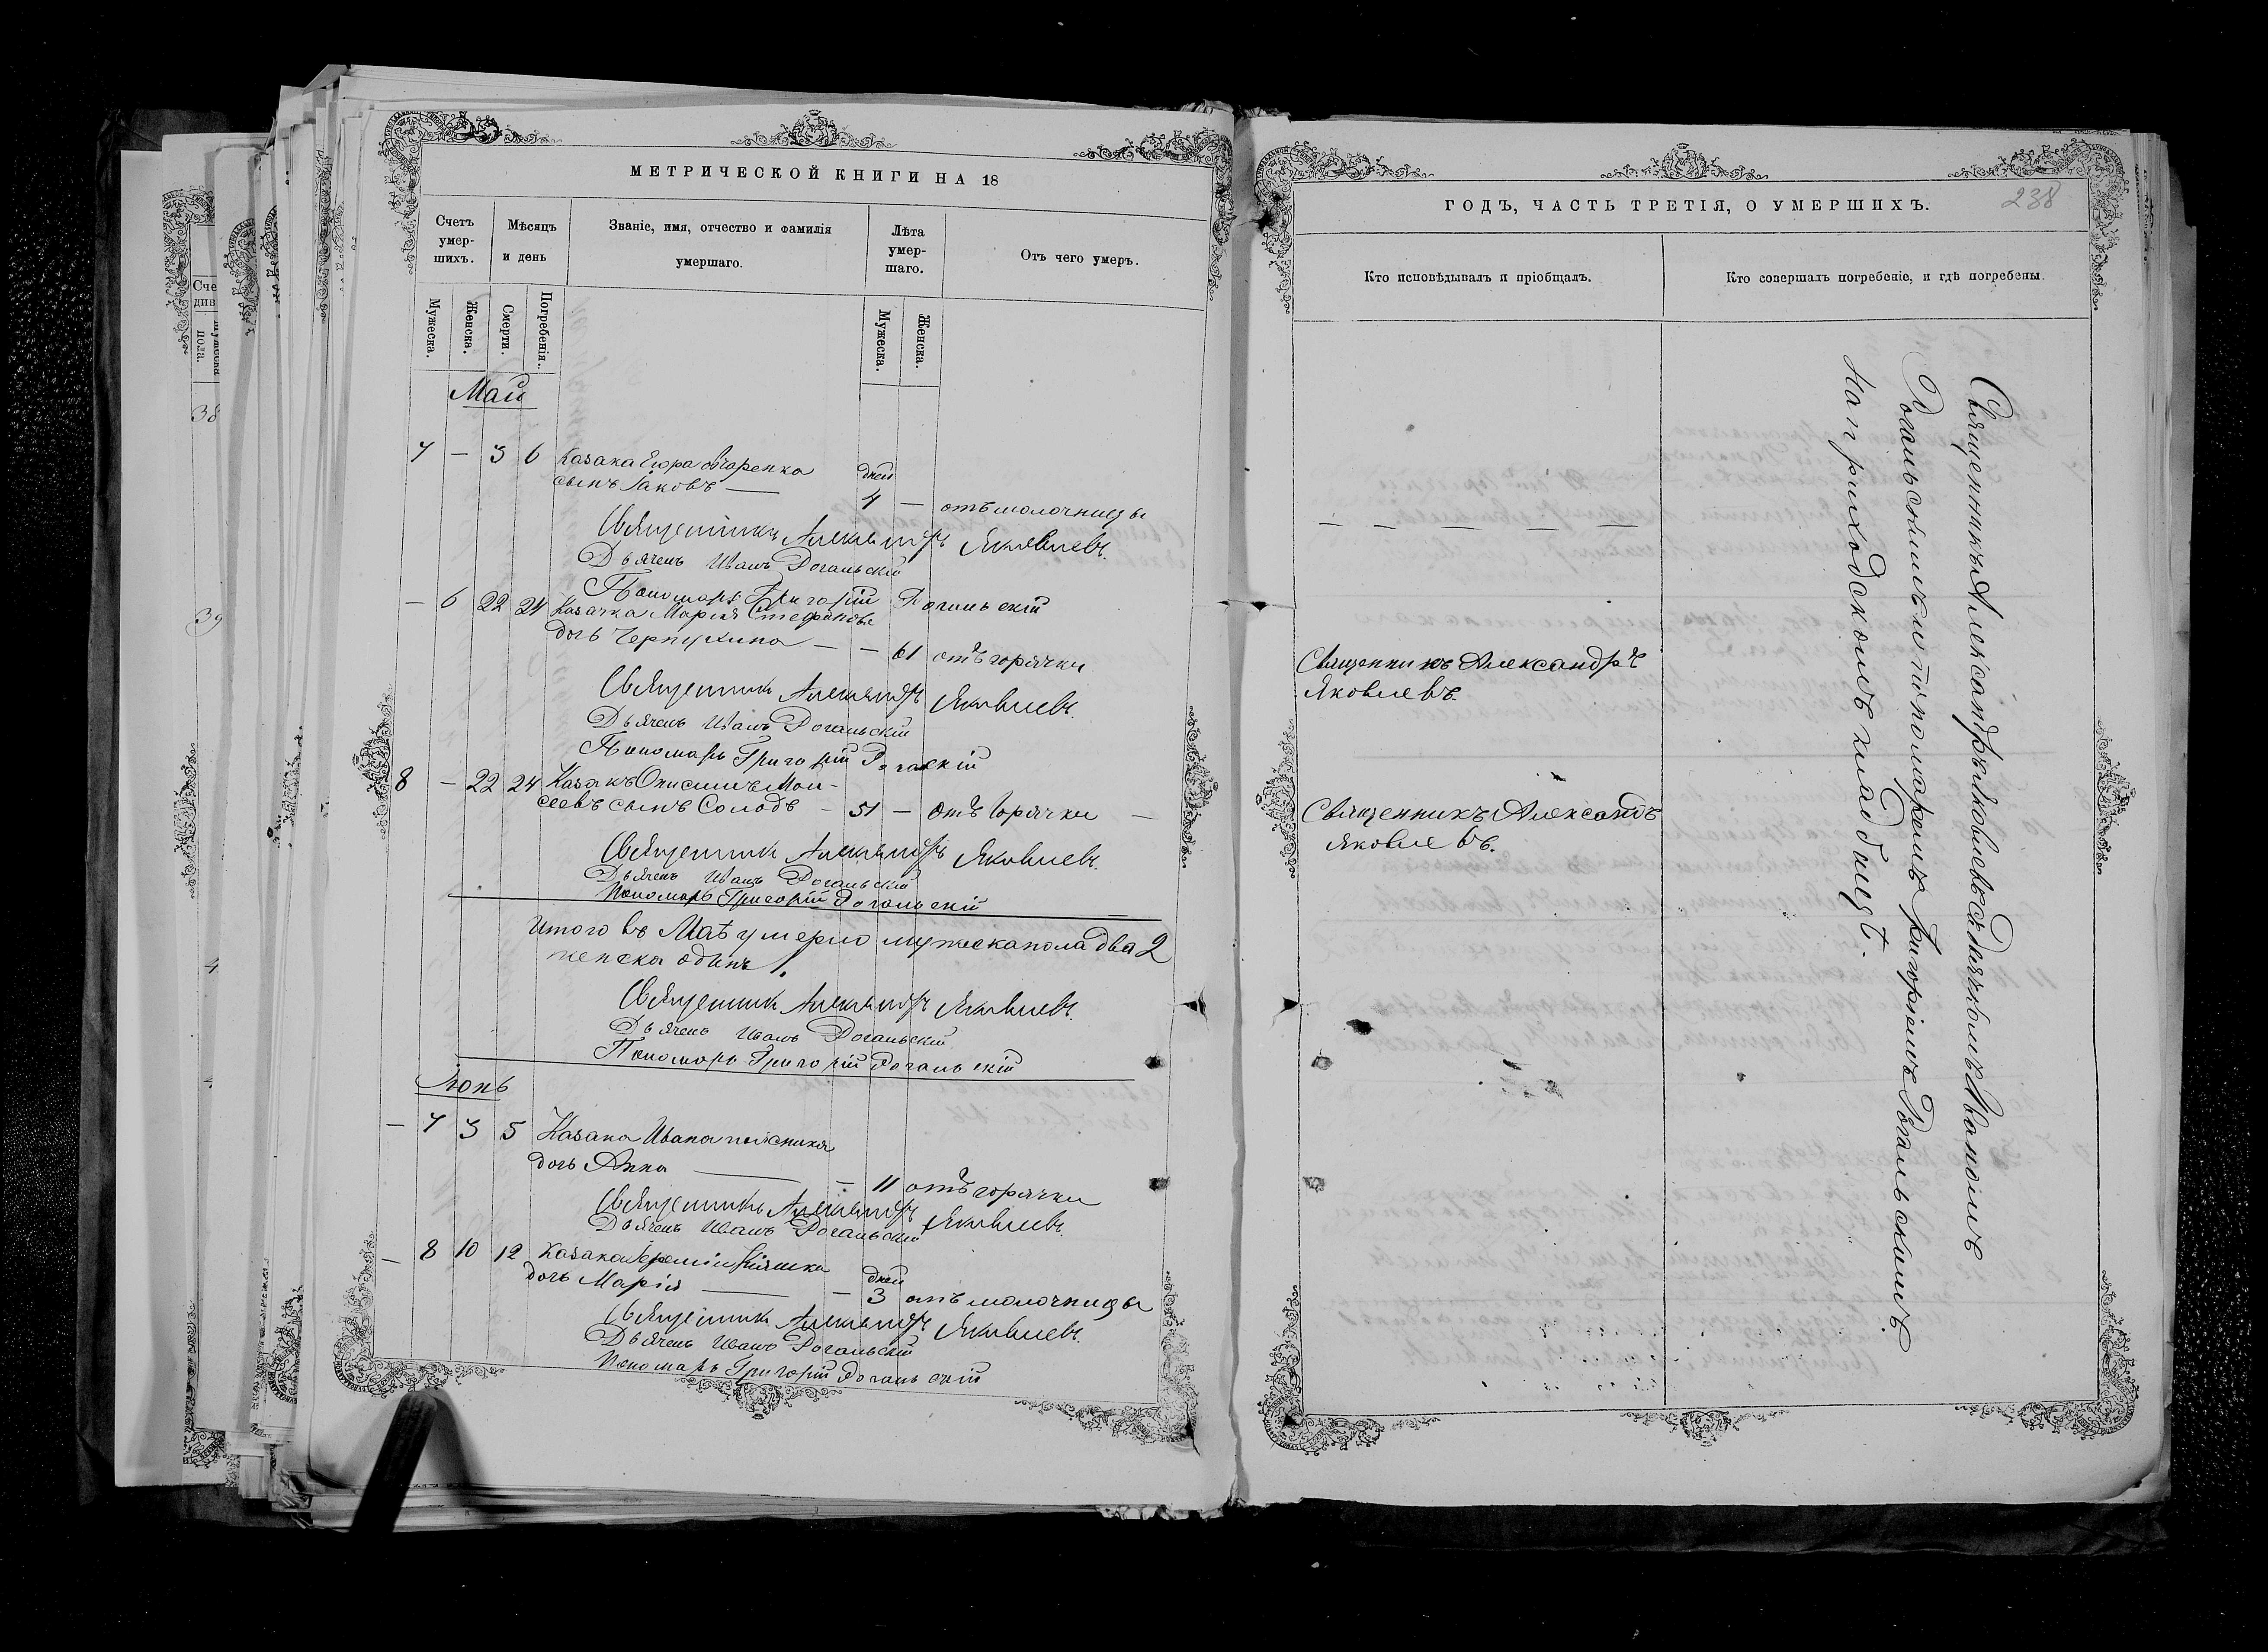 МЕТРИЧЕСКОЙ КНИГИ НА 18
Счетъ умер-шихъ.
Мѣсяцъ и день
Званіе, имя, отчество и фамилія умершаго.
Лѣта умер-шаго.
Отъ чего умеръ.
Мужеска.
Женска.
Смерти.
Погребенія.
Мужеска.
Женска.
Май
7 — 3 6 Казака Егора Овчаренка
сынъ Іаковъ — дней
4 — отъ молочницы
Священникъ Александръ Яковлевъ.
Дьячекъ Иванъ Рогальскій
Пономарь Григорій Рогальскій
— 6 22 24 Казачка Марія Стефанова
дочь — — 61 отъ горячки
Священникъ Александръ Яковлевъ.
Дьячекъ Иванъ Рогальскій
Пономарь Григорій Рогальскій
8 — 22 24 Казакъ Онисимъ Мои-
сеевъ сынъ Солодъ — 51 — отъ горячки —
Священникъ Александръ Яковлевъ.
Дьячекъ Иванъ Рогальскій
Пономарь Григорій Рогальскій
Итого въ Маѣ умерло мужеска пола два 2
женска одинъ 1.
Священникъ Александръ Яковлевъ.
Дьячекъ Иванъ Рогальскій
Пономарь Григорій Рогальскій
Іюнь
— 7 3 5 Казака Ивана
дочь Анна — — 11 отъ горячки
Священникъ Александръ Яковлевъ.
Дьячекъ Иванъ Рогальскій
— 8 10 12 Казака Іереміи Кіяшка
дочь Марія — — дней
3 отъ молочницы
Священникъ Александръ Яковлевъ.
Дьячекъ Иванъ Рогальскій
Пономарь Григорій Рогальскій
238
ГОДЪ, ЧАСТЬ ТРЕТІЯ, О УМЕРШИХЪ.
Кто исповѣдывалъ и пріобщалъ.
Кто совершалъ погребеніе, и гдѣ погребены.
— — — — — —
Священникъ Александръ
Яковлевъ.
Священникъ Александъ
Яковлевъ.
Священникъ Александръ Яковлевъ съ Дячкомъ Иваномъ
Рогальскимъ и пономаремъ Григоріемъ Рогальскимъ
На приходскомъ кладбищѣ.
38
39
4